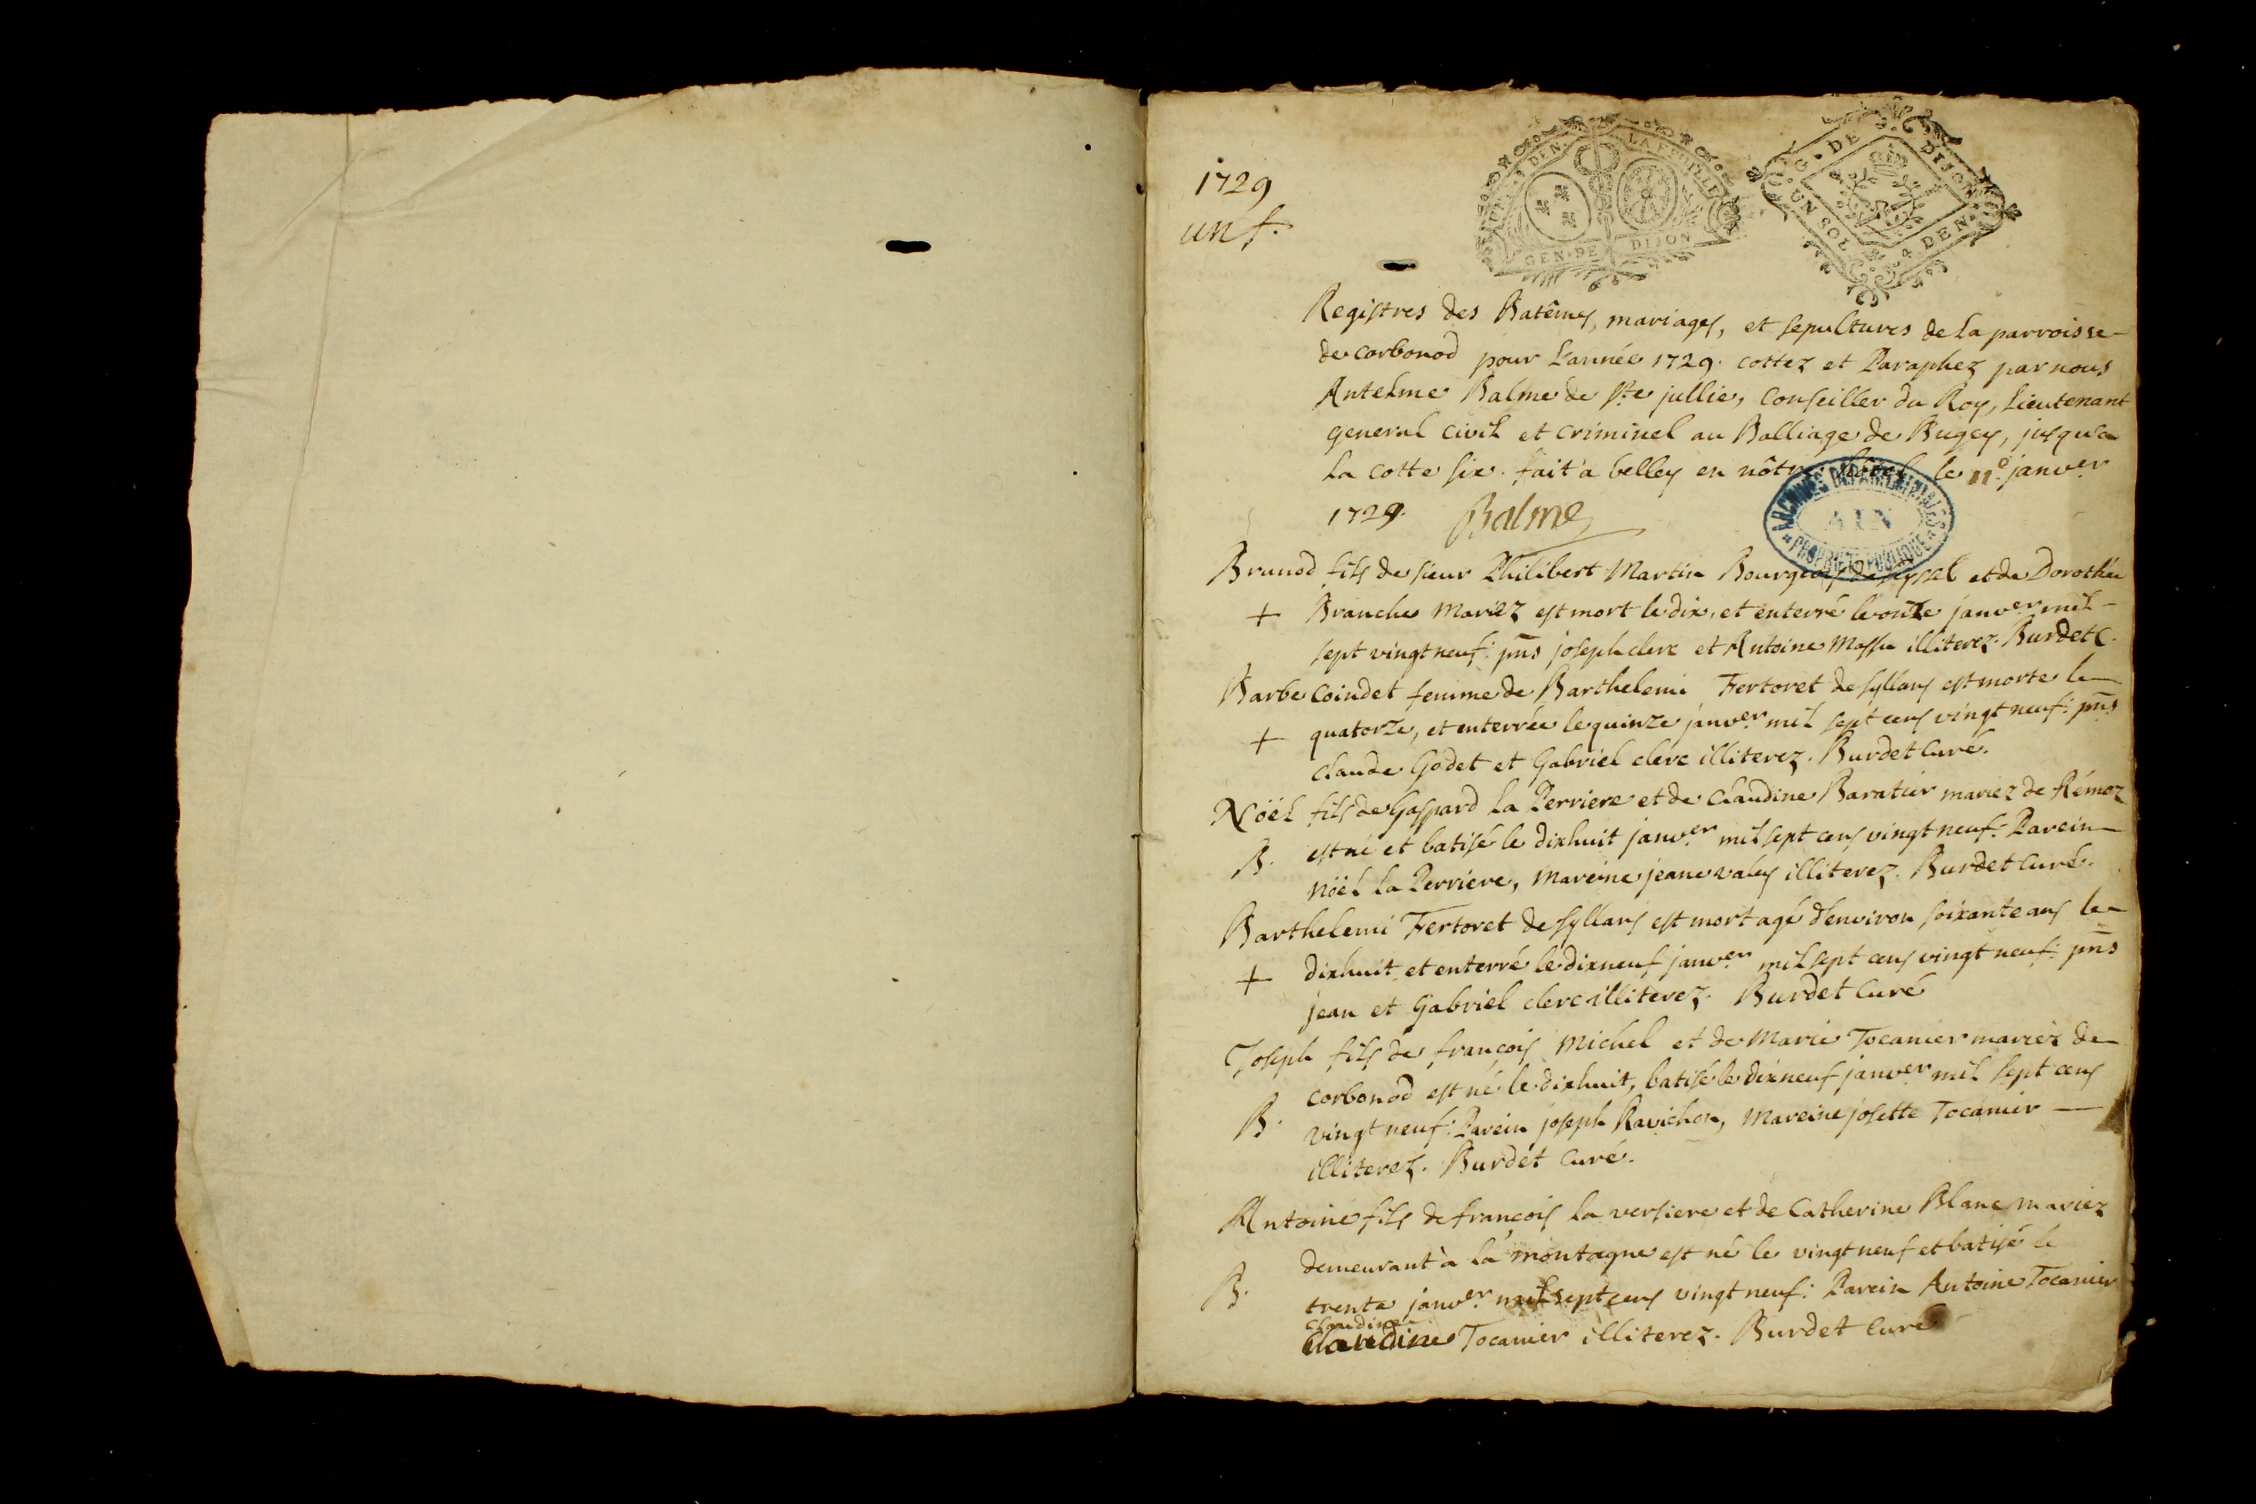 1729
un f.
DEN. LA FEUILLE
GEN. DE DIJON
G. DE DIJON
UN SOL 4 DEN.
Registres des Batêmes, mariages, et sepultures de la parroisse
de corbonod pour L'année 1729. cottez et Paraphez par nous
Antelme Balme de Ste jullie, Conseiller du Roy, Lieutenant
general civil et criminel au Balliage de Bugey, jusqu'a
la cotte six. fait a belley en nôtre hôtel le 11e janver
1729. Balme
ARCHIVES DÉPARTEMENTALES
AIN
PROPRIÉTÉ PUBLIQUE
Brunod fils de sieur Philibert Martin Bourgeois de seyssel et de Dorothée
+ Branche Mariez est mort le dix, et enterré le onze janver mil
sept vingt neuf: pns joseph clerc et Antoine Massu illiterez. Burdet C.
Barbe Coindet femme de Barthelemi Fertoret de syllans est morte le
+ quatorze, et enterrée le quinze janver mil sept cens vingt neuf: pns
claude Godet et Gabriel clerc illiterez. Burdet Curé.
Nöël fils de Gaspard La Perriere et de Claudine Baratier mariez de Rémoz
B. est né et batisé le dixhuit janver mil sept cens vingt neuf. Parein
Nöël La Perriere, Mareine jeane valey illiterez. Burdet Curé.
Barthelemi Fertoret de syllans est mort agé d'environ soixante ans le
+ dixhuit et enterré le dixneuf janver mil sept cens vingt neuf: pns
jean et Gabriel clerc illiterez. Burdet Curé
Joseph fils de françois Michel et de Marie Tocanier mariez de
corbonod est né le dixhuit, batisé le dixneuf janver mil sept cens
B. vingt neuf: Parein joseph Ravichon, Mareine josette Tocanier
illiterez. Burdet Curé.
Antoine fils de françois La versiere et de Catherine Blanc Mariez
demeurant à la montagne est né le vingt neuf et batisé le
B. trente janver mil sept cens vingt neuf: Parein Antoine Tocanier
claudine
claudine Tocanier illiterez. Burdet Curé